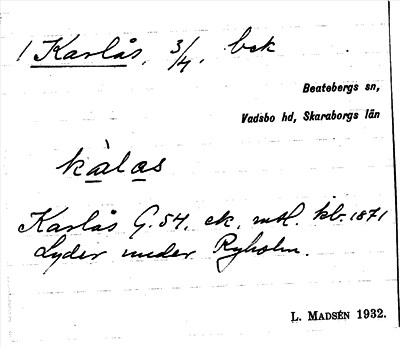 1 Karlås, 3/4, bck
Beatebergs sn,
Vadsbo hd, Skaraborgs län
kàlas
Karlås G. 54. ek. mtl. kb. 1871
Lyder under Ryholm.
L. MADSÉN 1932.